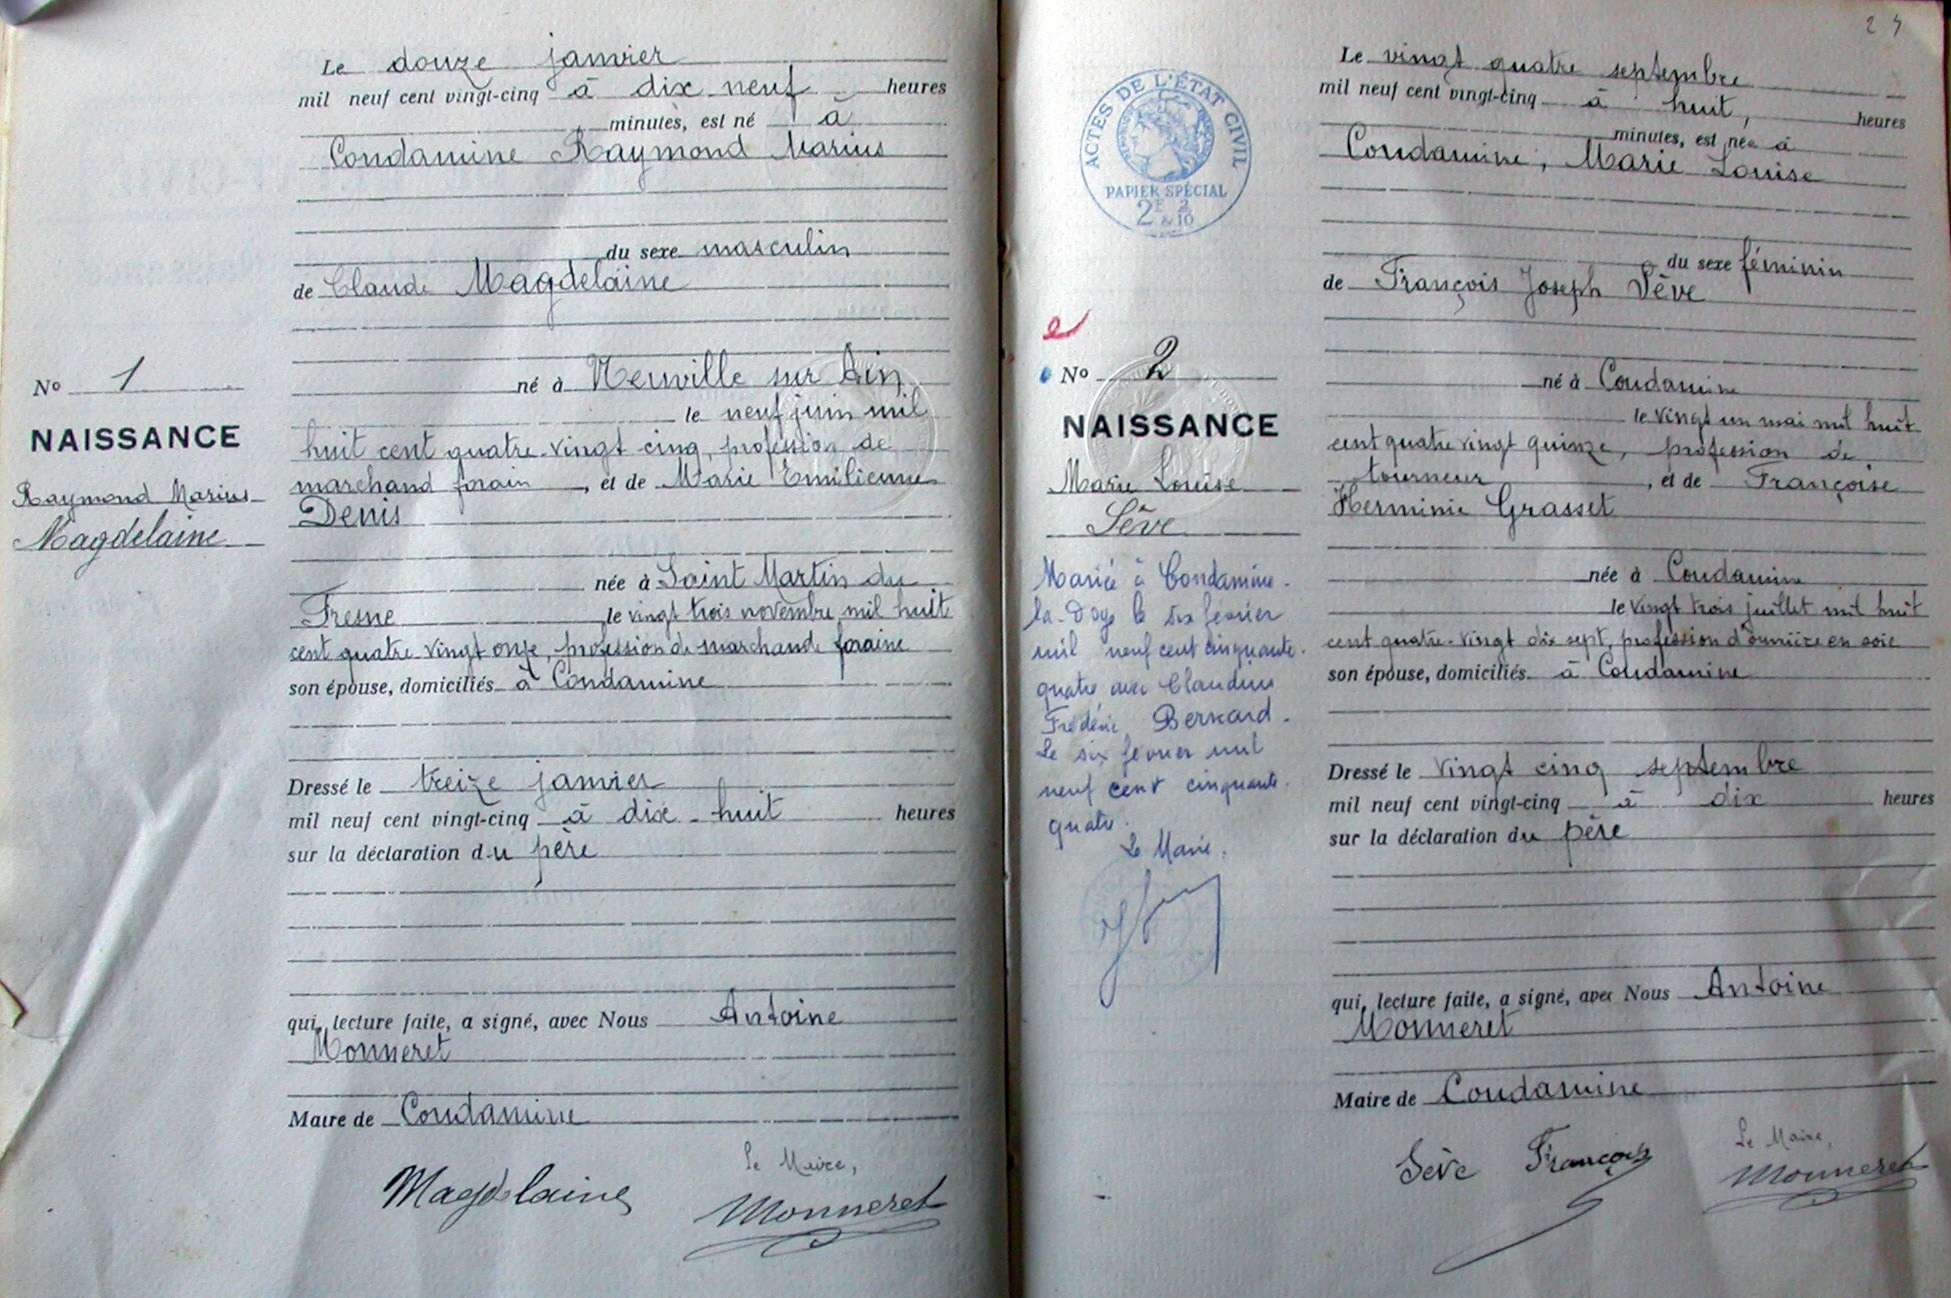 Le douze janvier
mil neuf cent vingt-cinq à dix neuf heures
minutes, est né à
Condamine Raymond Marius
du sexe masculin
de Claude Magdelaine
né à Neuville sur Ain
le neuf juin mil
huit cent quatre-vingt cinq, profession de
marchand forain, et de Marie Emilienne
Denis
née à Saint Martin du
Fresne, le vingt trois novembre mil huit
cent quatre-vingt onze, profession de marchande foraine
son épouse, domiciliés à Condamine
Dressé le treize janvier
mil neuf cent vingt-cinq à dix-huit heures
sur la déclaration du père
qui, lecture faite, a signé, avec Nous Antoine
Monneret
Maire de Condamine
Le Maire,
Magdelaine Monneret
No 1
NAISSANCE
Raymond Marius
Magdelaine
24
ACTES DE L'ÉTAT CIVIL
PAPIER SPÉCIAL
2E & 2/10
e
No 2
NAISSANCE
Marie Louise
Sève
Mariée à Condamine-
la-Doye le six février
mil neuf cent cinquante-
quatre avec Claudius
Frédéric Bernard.
Le six février mil
neuf cent cinquante-
quatre.
Le Maire.
Le vingt quatre septembre
mil neuf cent vingt-cinq à huit, heures
minutes, est née à
Condamine, Marie Louise
du sexe féminin
de François Joseph Sève
né à Condamine
le vingt un mai mil huit
cent quatre vingt quinze, profession de
tourneur, et de Françoise
Herminie Grasset
née à Condamine
le vingt trois juillet mil huit
cent quatre-vingt dix sept, profession d'ouvrière en soie
son épouse, domiciliés à Condamine
Dressé le vingt cinq septembre
mil neuf cent vingt-cinq à dix heures
sur la déclaration du père
qui, lecture faite, a signé, avec Nous Antoine
Monneret
Maire de Condamine
Le Maire,
Sève François Monneret